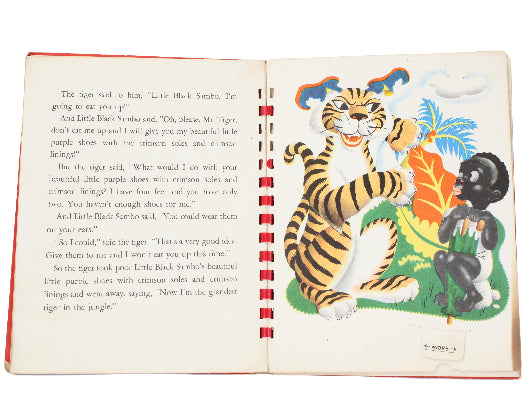 The tiger said to him, "Little Black Sambo, I'm
going to eat you up!"
And Little Black Sambo said, "Oh, please, Mr. Tiger,
don't eat me up and I will give you my beautiful little
purple shoes with the crimson soles and crimson
linings!"
But the tiger said, "What would I do with your
beautiful little purple shoes with crimson soles and
crimson linings? I have four feet and you have only
two. You haven't enough shoes for me."
And Little Black Sambo said, "You could wear them
on your ears."
"So I could," said the tiger. "That's a very good idea.
Give them to me and I won't eat you up this time."
So the tiger took poor Little Black Sambo's beautiful
little purple shoes with crimson soles and crimson
linings and went away, saying, "Now I'm the grandest
tiger in the jungle."
MOVE